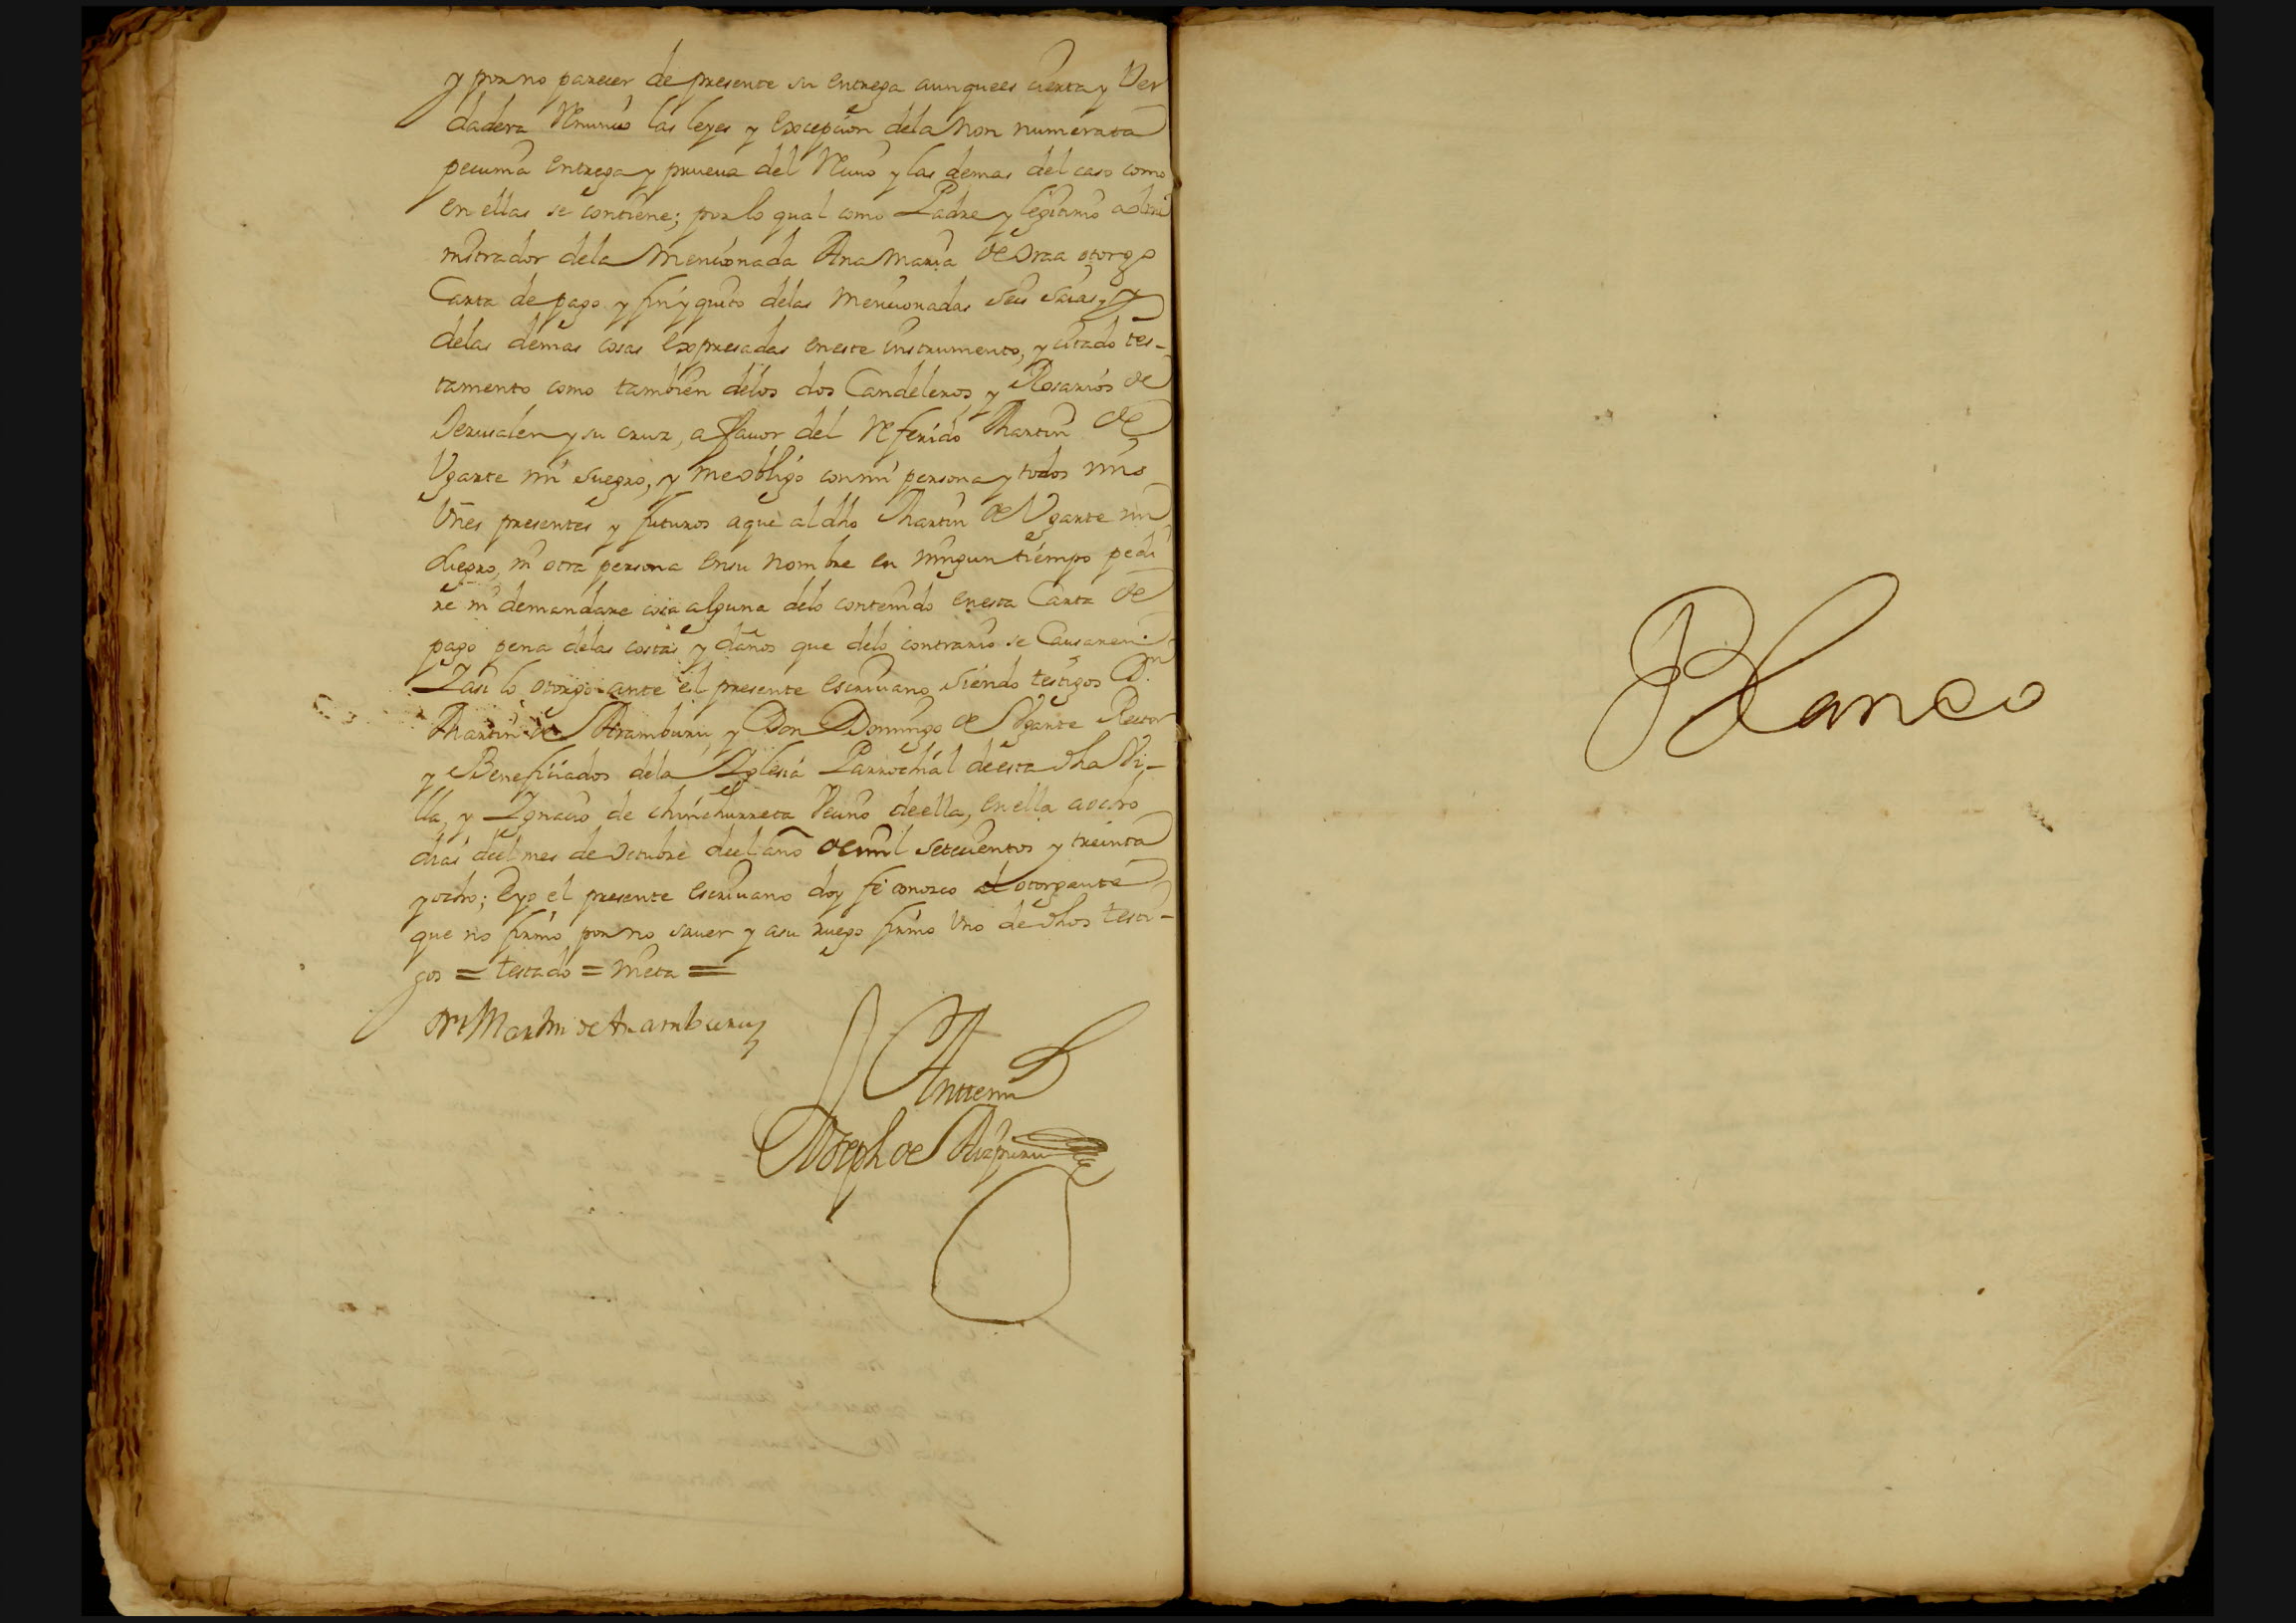 y por no parecer de presente su entrega aunquees cierta y Ver
dadera Renuncio las leyes y excepcion dela non numerata
pecunia entrega y prueua del Reciuo y las demas del caso como
en ellas se contiene; por lo qual como Padre y legitimo admi
nistrador dela mencionada Ana Maria de otorgo
Carta de pago y finyquito delas mencionadas seis y
delas demas cosas expresadas eneste instrumento, y citado tes-
tamento como tambien delos dos Candeleros, y Rosarios de
Jerusalen y su cruz, a fauor del Referido Martin de
Vgarte mi suegro, y meobligo conmi persona y todos mis
Vñes presentes y futuros aque al dho Martin de Vgarte mi
suegro, ni otra persona ensu nombre en ningun tiempo pedi
re ni demandare cosa alguna delo contenido enesta Carta de
pago pena delas costas y daños que delo contrario se Causaren.
Yasi lo otorgo ante el presente escriuano siendo testigos Dn.
Martin de Aramburu, y Don Domingo de Vgarte Rector
y Beneficiados dela Yglesia Parrochial deesta dha Vi-
lla, y Ygnacio de Chinchurreta Vecino deella, en ella aocho
dias del mes de Octubre del año de mil setecientos y treinta
yocho; eyo el presente escriuano doy fe conozco al otorgante
que no firmo por no sauer y asu ruego firmo Vno de dhos testi-
gos = testado = =
Dn Martin de Aramburu
Antemi
Joseph de Aizpuru
Blanco